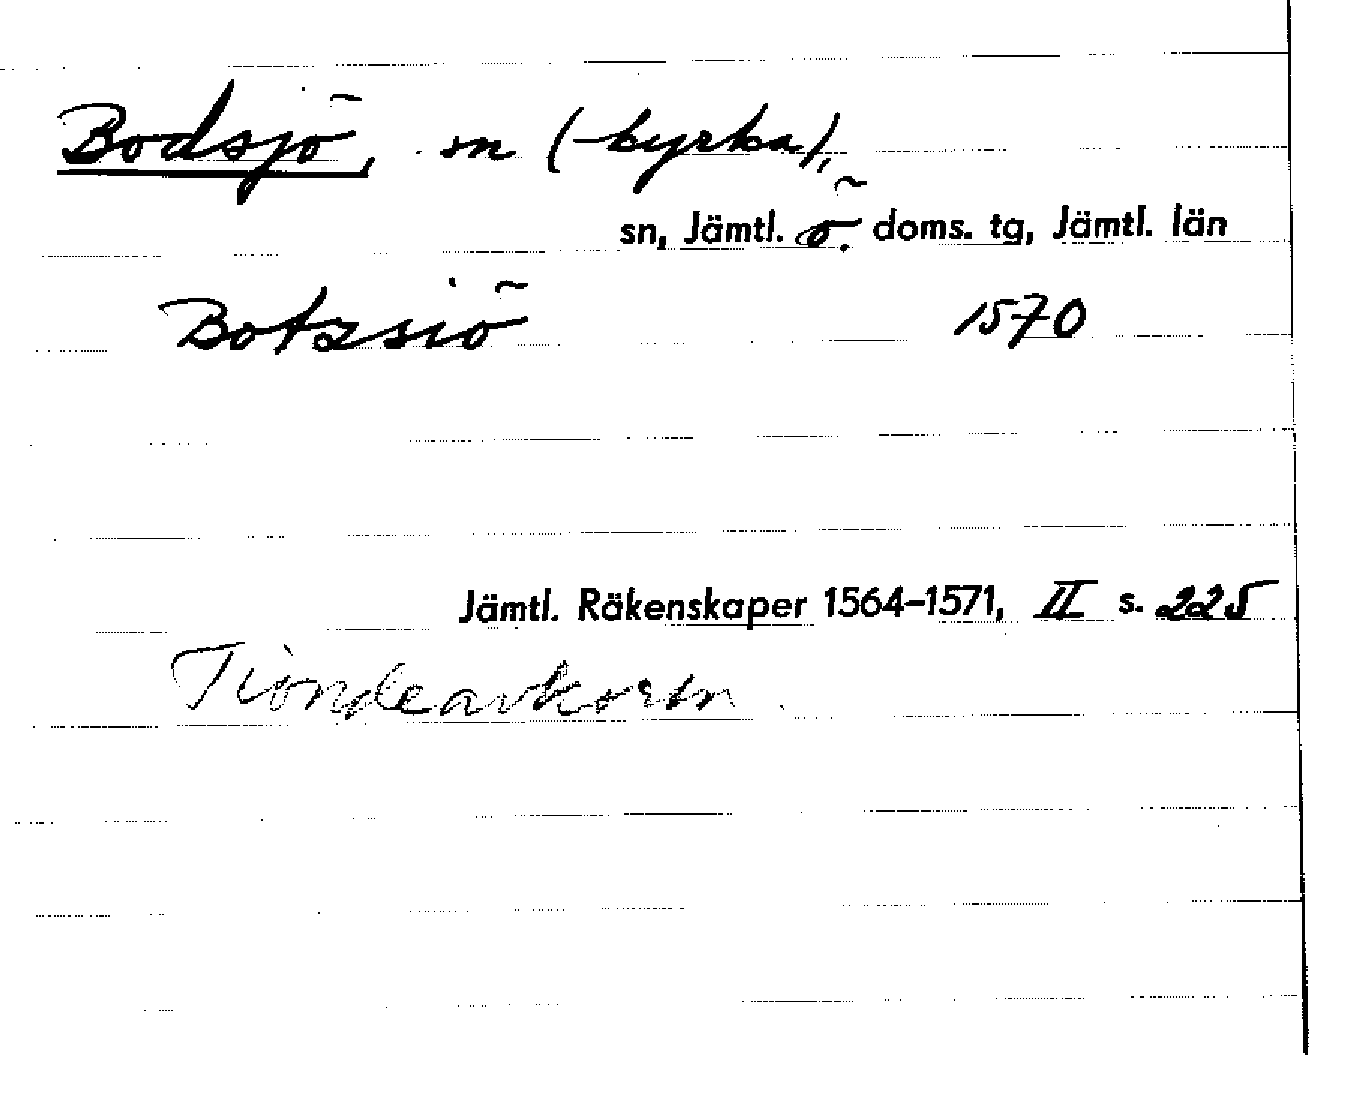 Bodsjö, sn (-kyrka),
sn, Jämtl. ö. doms. tg, Jämtl. län
Botzsiö 1570
Jämtl. Räkenskaper 1564–1571, II s. 225
Tiondeavkortn